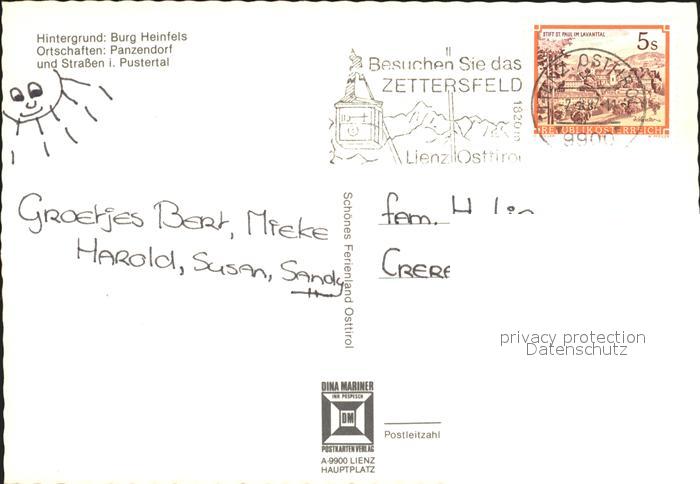 Hintergrund: Burg Heinfels
Ortschaften: Panzendorf
und Straßen i. Pustertal
Besuchen Sie das
ZETTERSFELD
1820m
Lienz Osttirol
STIFT ST. PAUL IM LAVANTTAL
5s
REPUBLIK ÖSTERREICH
9900
Groetjes Bert, Mieke
Harold, Susan, Sandy
Schönes Ferienland Osttirol
fam.
privacy protection
Datenschutz
DINA MARINER
INH POSPESCH
DM
POSTKARTENVERLAG
A-9900 LIENZ
HAUPTPLATZ
Postleitzahl